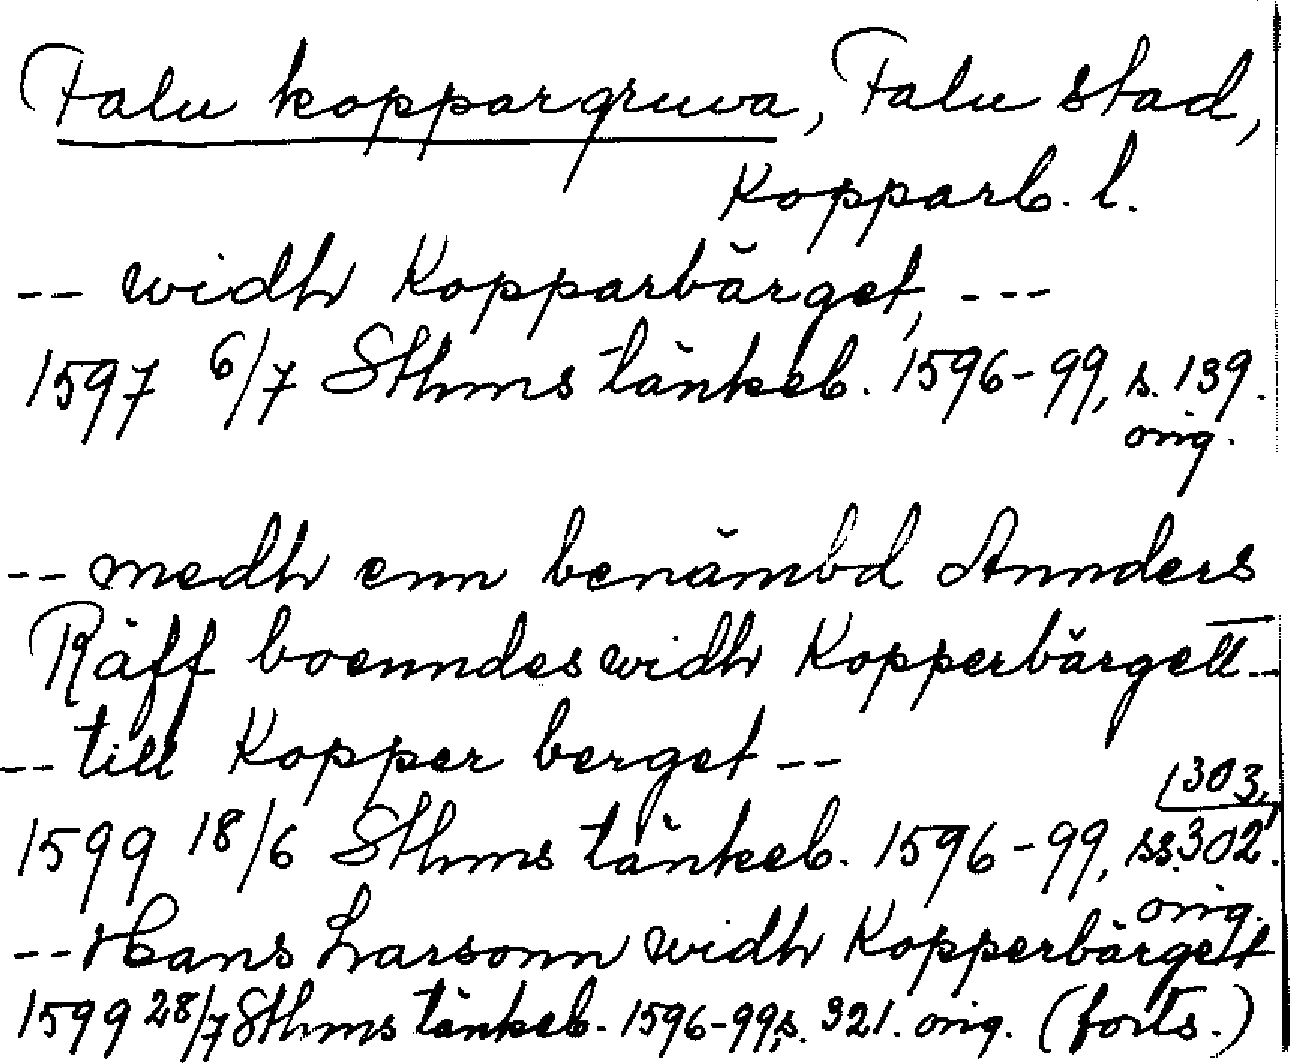 Falu koppargruva, Falu stad,
Kopparb. l.
-- widh Kopparbärget, ---
1597 6/7 Sthms tänkeb. 1596-99, s. 139.
orig.
-- medh enn benämbd Annders
Räff boenndes widh Kopperbärgett --
-- till Kopper berget --
303,
1599 18/6 Sthms tänkeb. 1596-99, ss. 302.
orig.
-- Hans Larsonn widh Kopperbärgett
1599 28/7 Sthms tänkeb. 1596-99, s. 321. orig. (forts.)